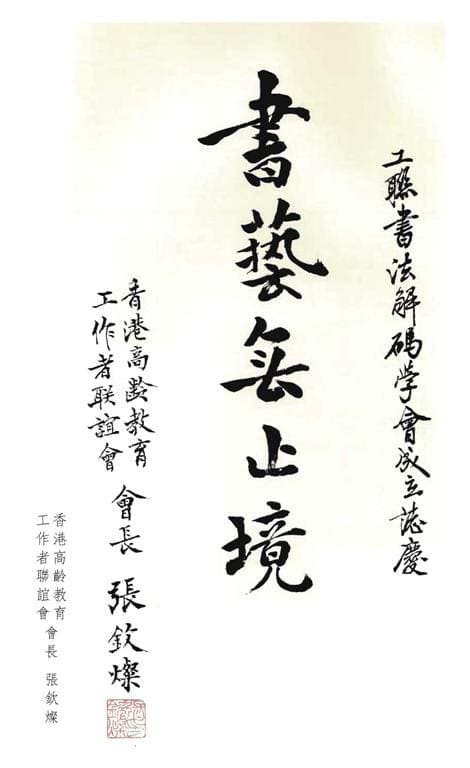 工聯書法解碼学會成立誌慶
書藝無止境
香港高齡教育
工作者联誼會
會長 張钦燦
香港高齡教育
工作者聯誼會 會長 張欽燦